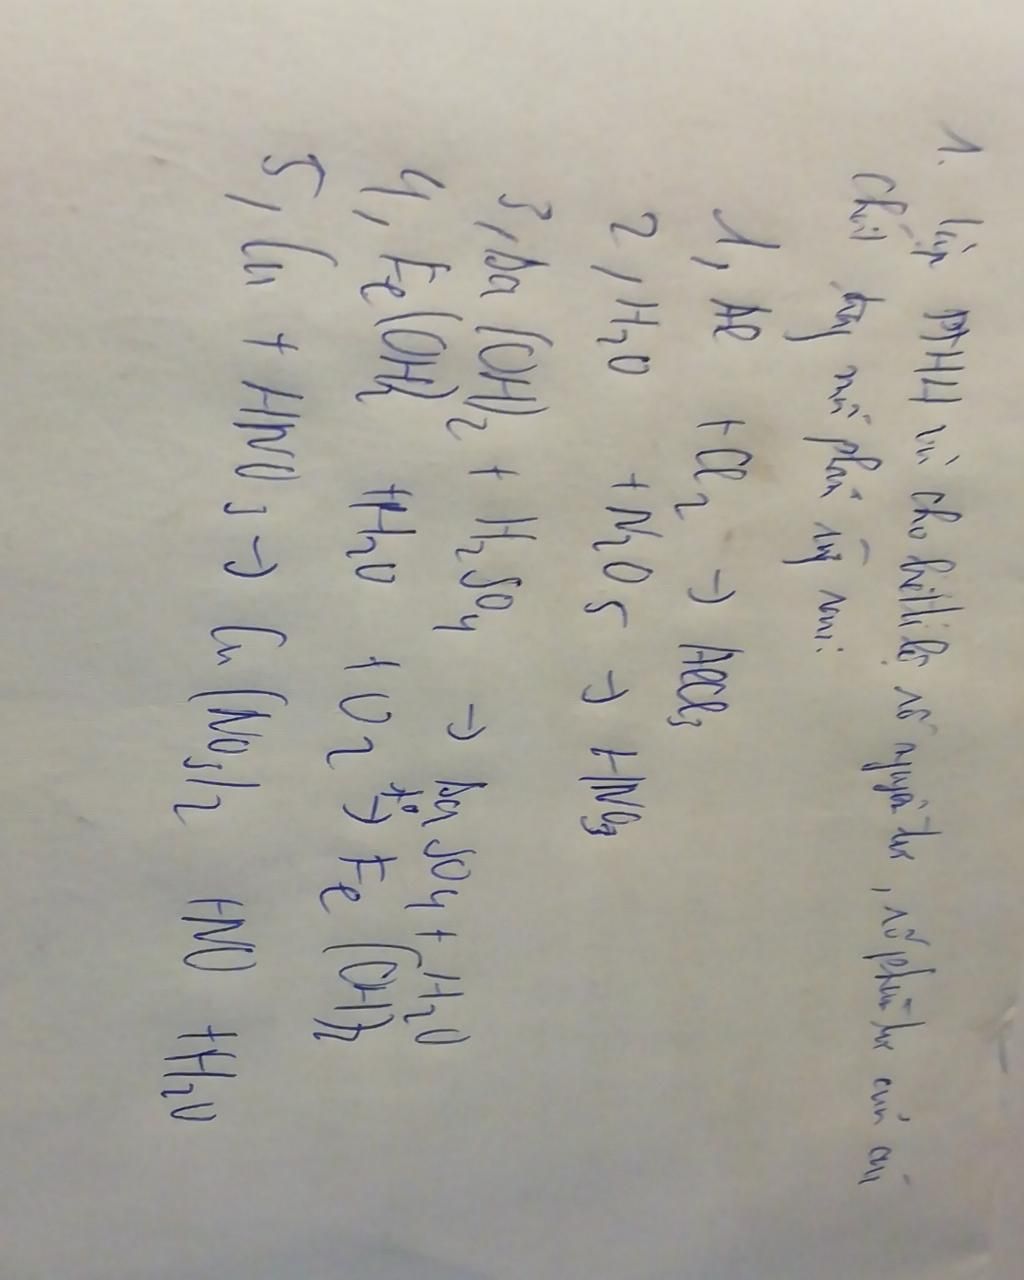 1. Lập PTHH và cho biết tỉ lệ số nguyên tử, số phân tử của các
chất trong mỗi phản ứng sau:
1, Al + Cl2 → AlCl3
2, H2O + N2O5 → HNO3
3, Ba(OH)2 + H2SO4 → BaSO4 + H2O
4, Fe(OH)2 + H2O + O2 t° → Fe(OH)2
5, Cu + HNO3 → Cu(NO3)2 + NO + H2O